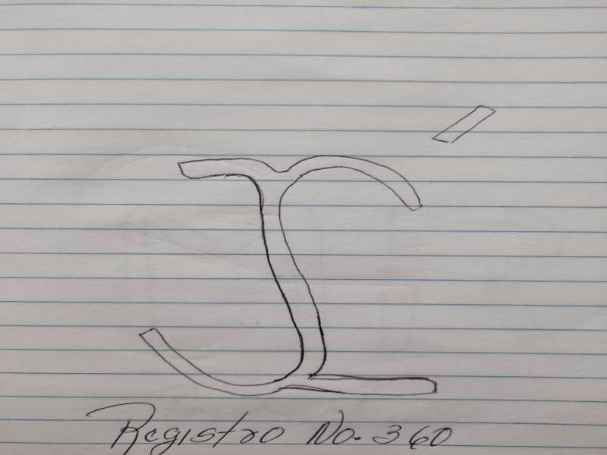 Registro No. 360